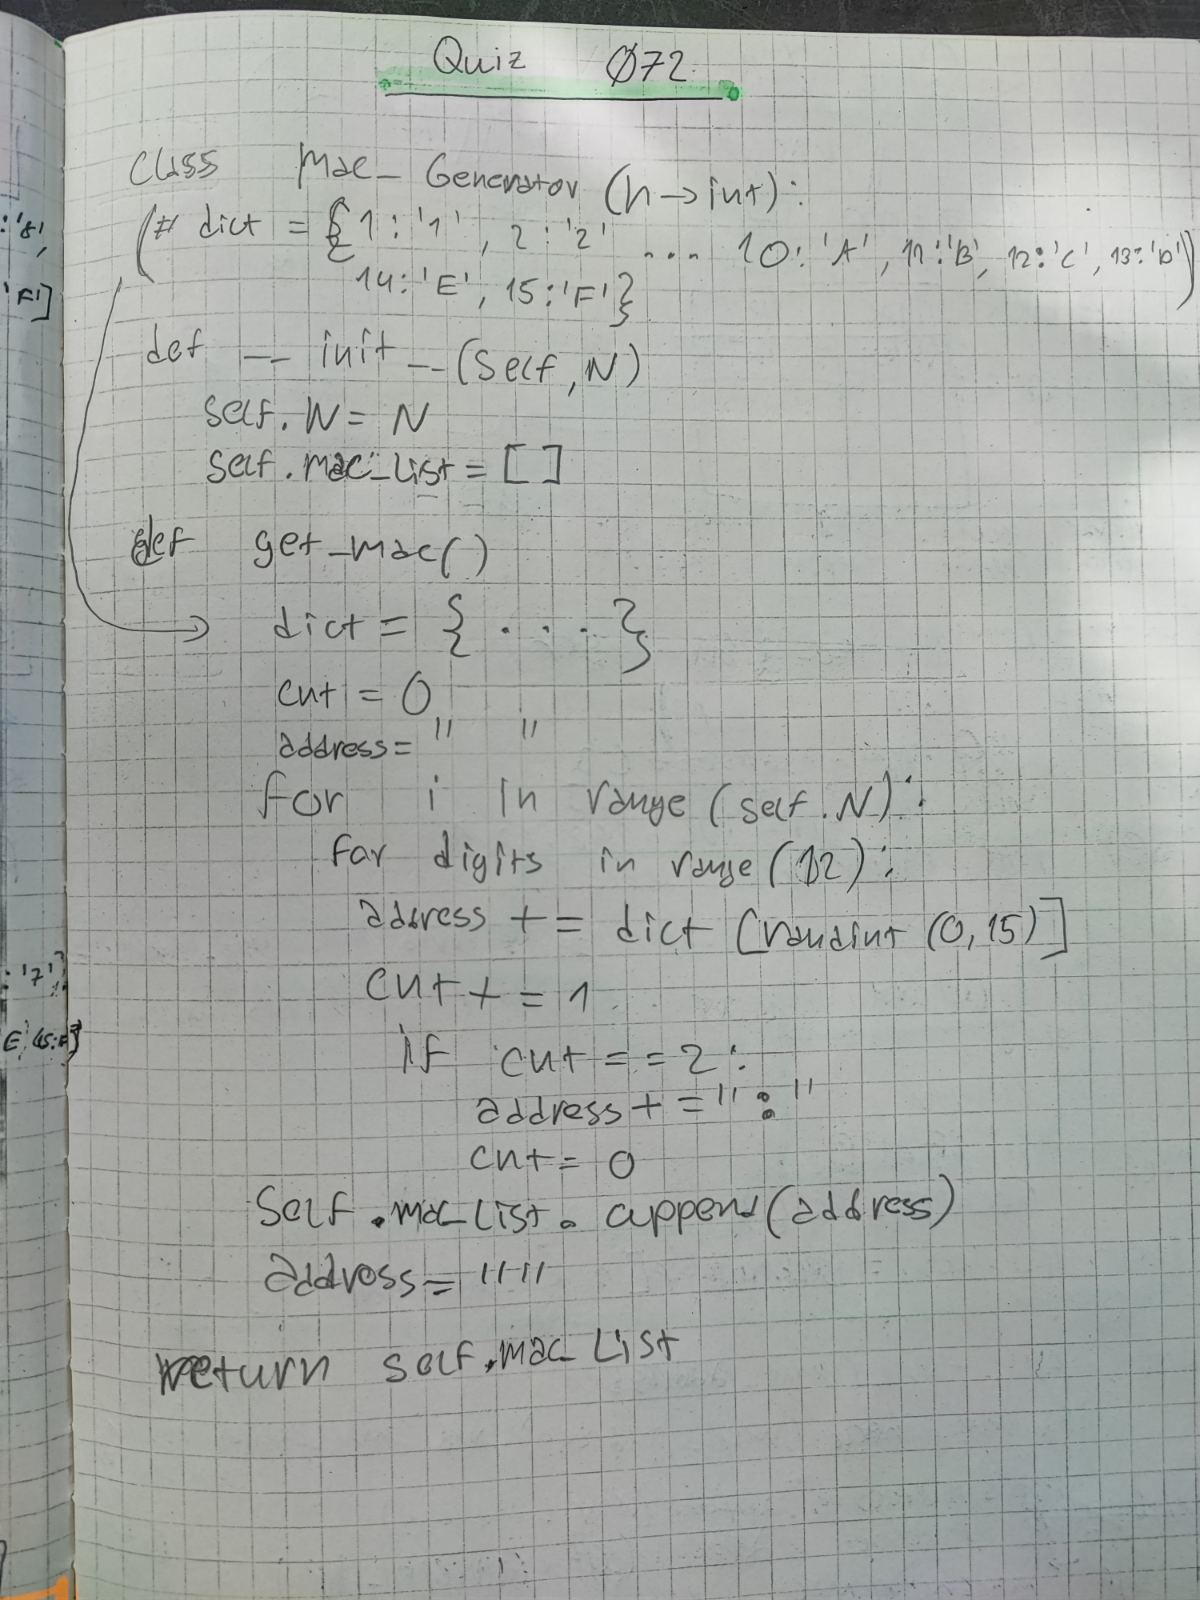 Quiz Ø72
Class Mac_Generator (n→int):
(# dict = {1:'1', 2:'2' ... 10:'A', 11:'B', 12:'C', 13:'D')
14:'E', 15:'F'}
def __init__(self, N)
self.N = N
self.mac_list = [ ]
def get_mac()
dict = { . . . }
cnt = 0
address = " "
for i in range (self.N):
for digits in range (12):
address += dict [randint (0,15)]
cnt += 1
if cnt == 2:
address += ":"
cnt = 0
self.mac_list.append(address)
address = ""
return self.mac_list
:'8',
'F']
:'7'}
E',15:F}